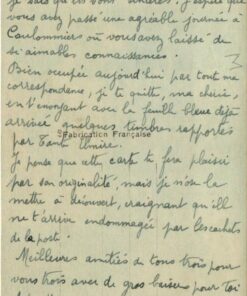 je sais qu'ils vous
vous avez passé une agréable journée à
Coulommiers où vous avez laissé de
si aimables connaissances.
Bien occupée aujourd'hui par toute ma
correspondance, je te quitte, ma chérie,
en t'envoyant avec la feuille bleue déjà
arrivée quelques timbres rapportés
par Tante
Fabrication Française
Je pense que cette carte te fera plaisir
par son originalité, mais je n'ose la
mettre à découvert, craignant qu'il
ne t'arrive endommagée par les cachets
de la poste.
Meilleures amitiés de tous trois pour
vous trois avec de gros baisers pour toi